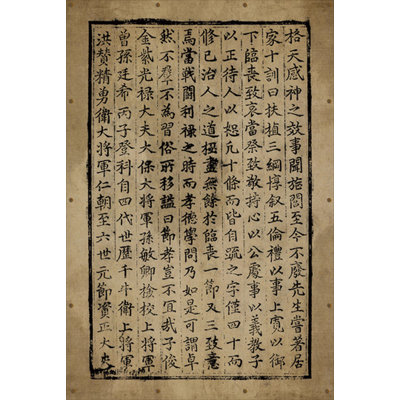 格天感神之效事聞旌閭至今不廢先生嘗著居
家十訓曰扶植三綱惇叙五倫禮以事上寬以御
下臨喪致哀當祭致敬持心以公處事以義教子
以正待人以恕凡十條而皆自號之字僅四十而
修己治人之道極盡無餘於臨喪一節又三致意
焉當戰鬪利祿之時而孝德學問乃如是可謂卓
然不群不為習俗所移謚曰節孝豈不宜哉子俊
金紫光祿大夫太保大將軍孫敏卿檢校上將軍
曾孫廷希丙子登科自四代世歷千斗衛上將軍
洪贊精勇衛大將軍仁朝至六世元節資正大夫